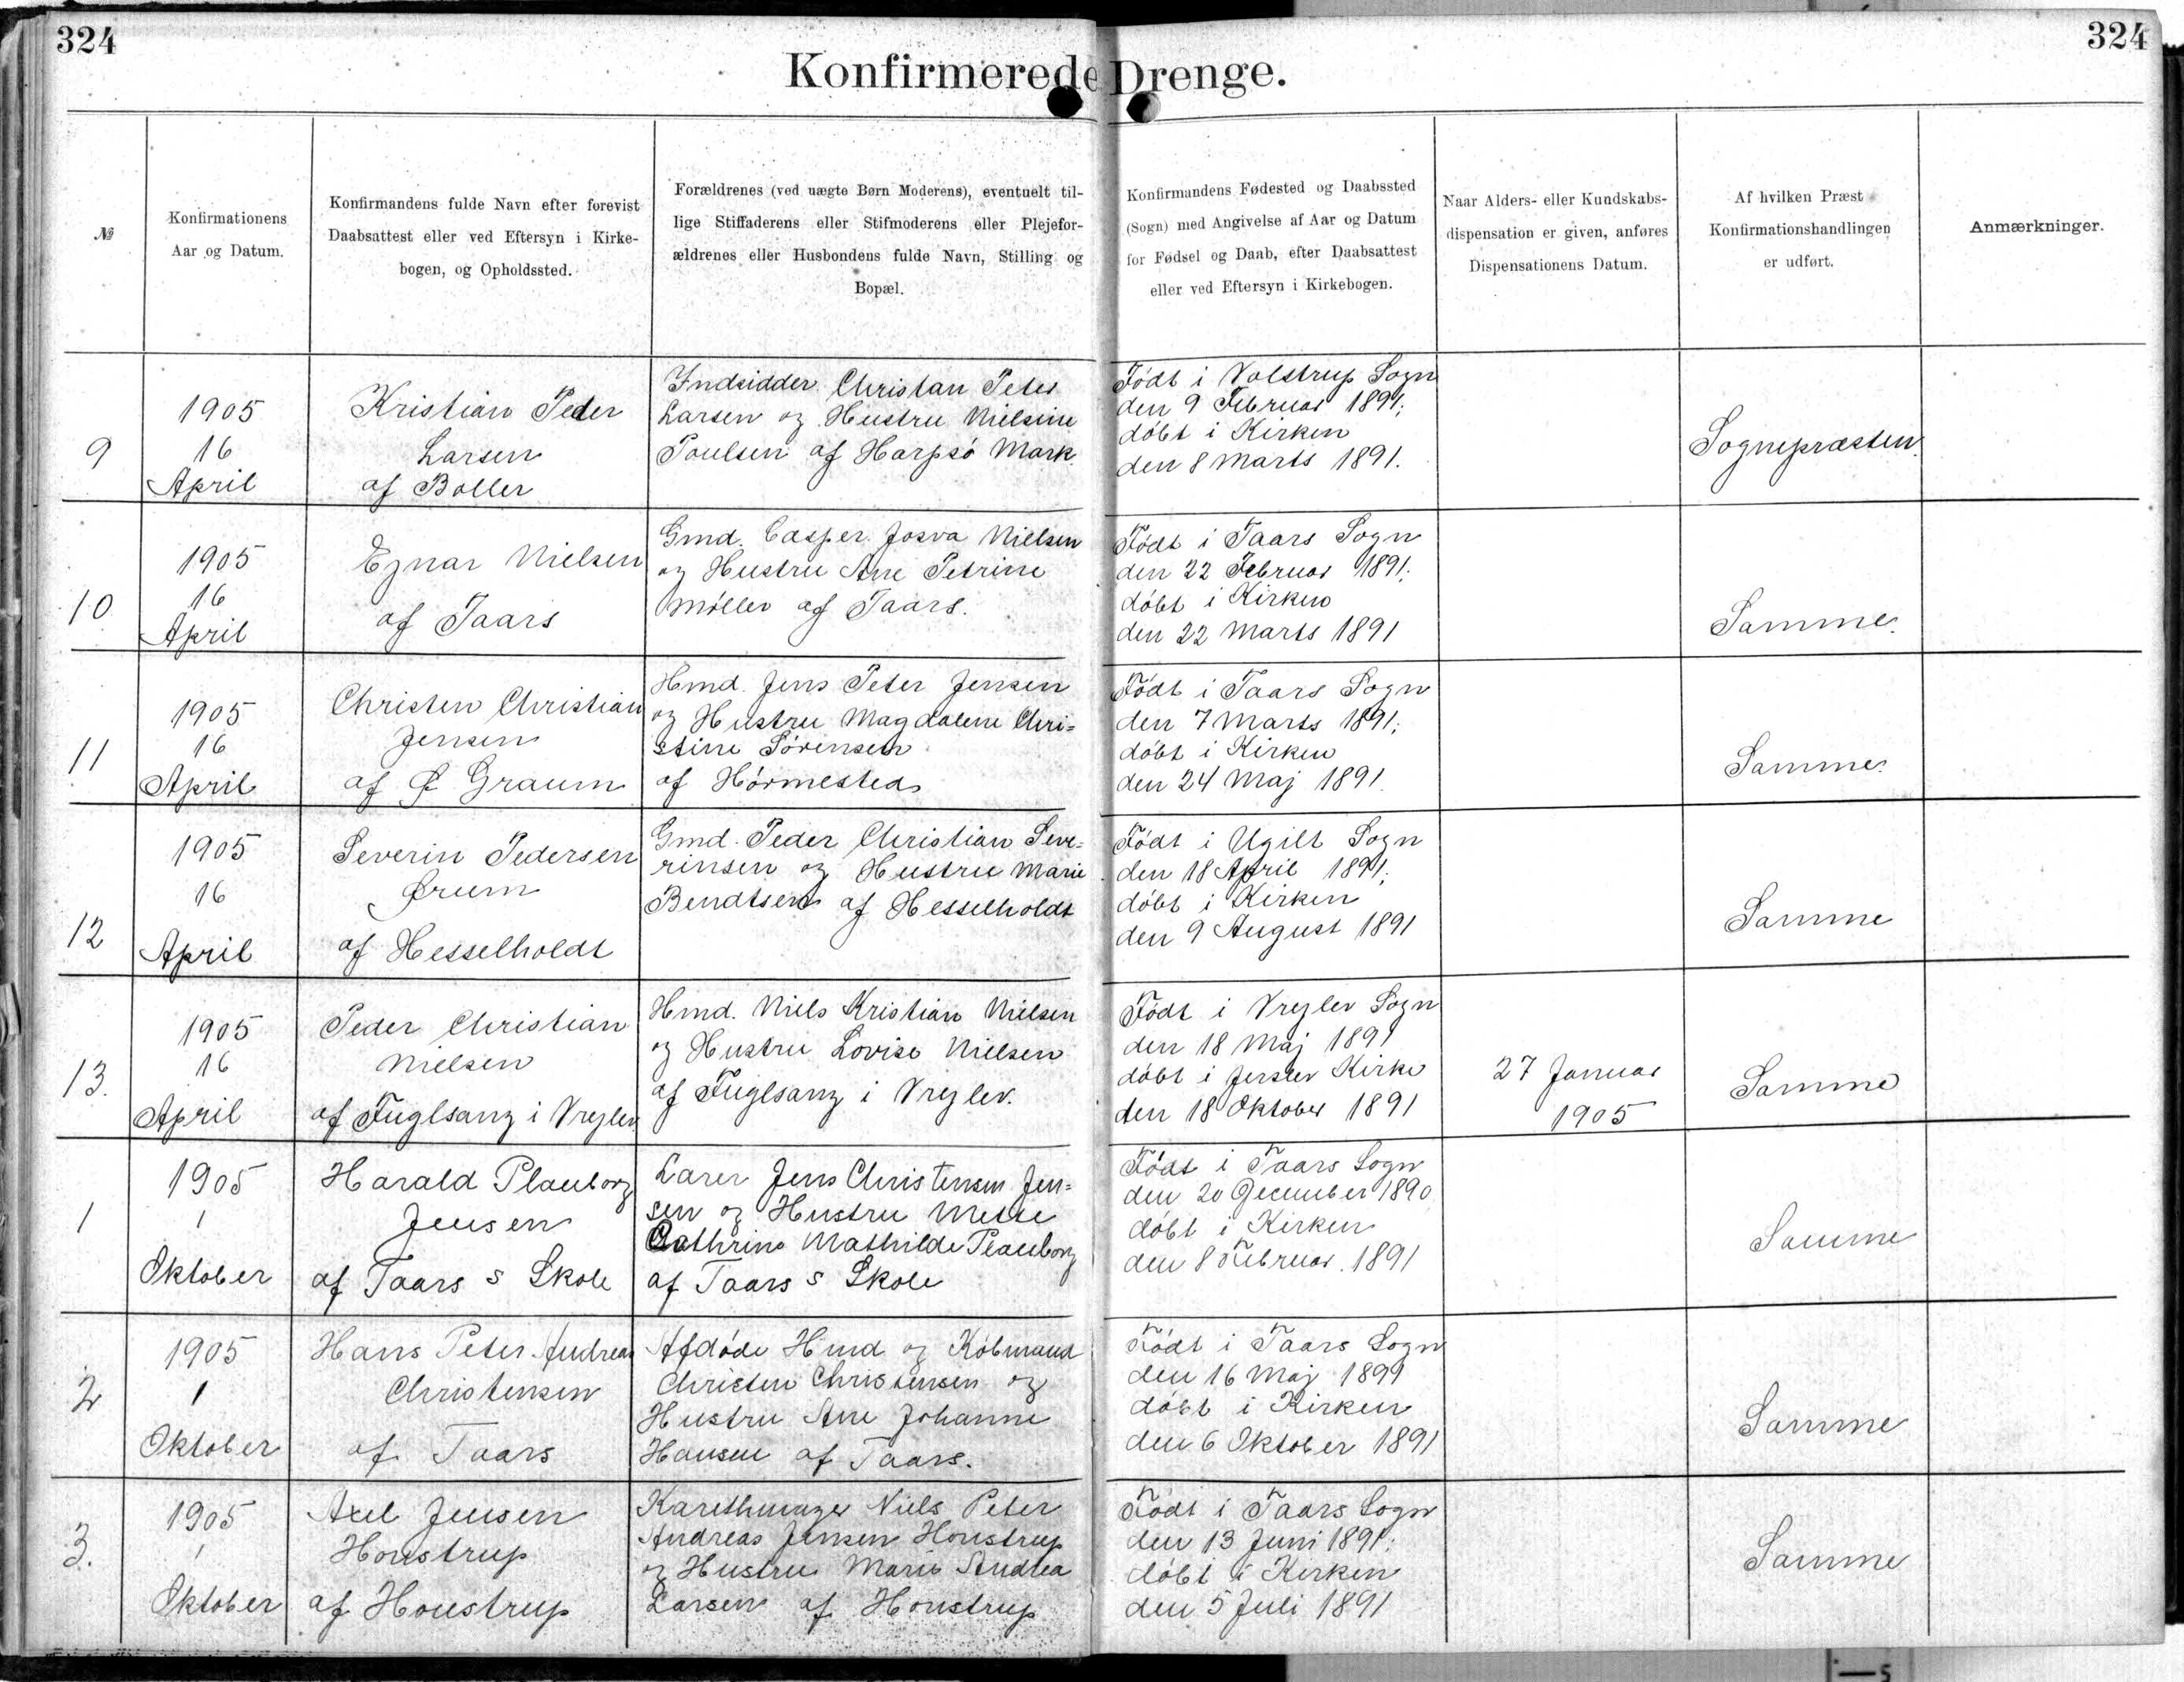 324
324
Konfirmerede Drenge.
№
Konfirmationens
Aar og Datum.
Konfirmandens fulde Navn efter forevist
Daabsattest eller ved Eftersyn i Kirke-
bogen, og Opholdssted.
Forældrenes (ved uægte Børn Moderens), eventuelt til-
lige Stiffaderens eller Stifmoderens eller Plejefor-
ældrenes eller Husbondens fulde Navn, Stilling og
Bopæl.
Konfirmandens Fødested og Daabssted
(Sogn) med Angivelse af Aar og Datum
for Fødsel og Daab, efter Daabsattest
eller ved Eftersyn i Kirkebogen.
Naar Alders- eller Kundskabs-
dispensation er given, anføres
Dispensationens Datum.
Af hvilken Præst
Konfirmationshandlingen
er udført.
Anmærkninger.
9
1905
16
April
Kristian Peder
Larsen
af Boller
Indsidder Christan Peter
Larsen og Hustru Nielsine
Poulsen af Harpsø Mark.
Født i Volstrup Sogn
den 9 Februar 1891;
døbt i Kirken
den 8 Marts 1891.
Sognepræsten.
10
1905
16
April
Ejnar Nielsen
af Taars
Gmd. Casper Josva Nielsen
og Hustru Ane Petrine
Møller af Taars.
Født i Taars Sogn
den 22 Februar 1891;
døbt i Kirken
den 22 Marts 1891
Samme.
11
1905
16
April
Christen Christian
Jensen
af Ø Graum
Hmd. Jens Peter Jensen
og Hustru Magdalene Chri=
stine Sørensen
af Hørmested
Født i Taars Sogn
den 7 Marts 1891;
døbt i Kirken
den 24 Maj 1891.
Samme.
12
1905
16
April
Severin Pedersen
Ørum
af Hesselholdt
Gmd. Peder Christian Seve=
rinsen og Hustru Marie
Bendtsen af Hesselholdt
Født i Ugilt Sogn
den 18 April 1891;
døbt i Kirken
den 9 August 1891
Samme
13.
1905
16
April
Peder Christian
Nielsen
af Fuglsang i Vrejlev
Hmd. Niels Kristian Nielsen
og Hustru Lovise Nielsen
af Fuglsang i Vrejlev.
Født i Vrejlev Sogn
den 18 Maj 1891
døbt i Jerslev Kirke
den 18 Oktober 1891
27 Januar
1905
Samme
1
1905
1
Oktober
Harald Plauborg
Jensen
af Taars S Skole
Lærer Jens Christensen Jen=
sen og Hustru Mette
Cathrine Mathilde Plauborg
af Taars S Skole
Født i Taars Sogn
den 20 December 1890
døbt i Kirken
den 8 Februar. 1891
Samme
2
1905
1
Oktober
Hans Peter Andreas
Christensen
af Taars
Afdøde Hmd og Købmand
Christen Christensen og
Hustru Ane Johanne
Hansen af Taars.
Født i Taars Sogn
den 16 Maj 1899
døbt i Kirken
den 6 Oktober 1891
Samme
3.
1905
1
Oktober
Axel Jensen
Houstrup
af Houstrup
Karethmager Niels Peter
Andreas Jensen Houstrup
og Hustru Marie Andrea
Larsen af Houstrup
Født i Taars Sogn
den 13 Juni 1891;
døbt i Kirken
den 5 Juli 1891
Samme
5